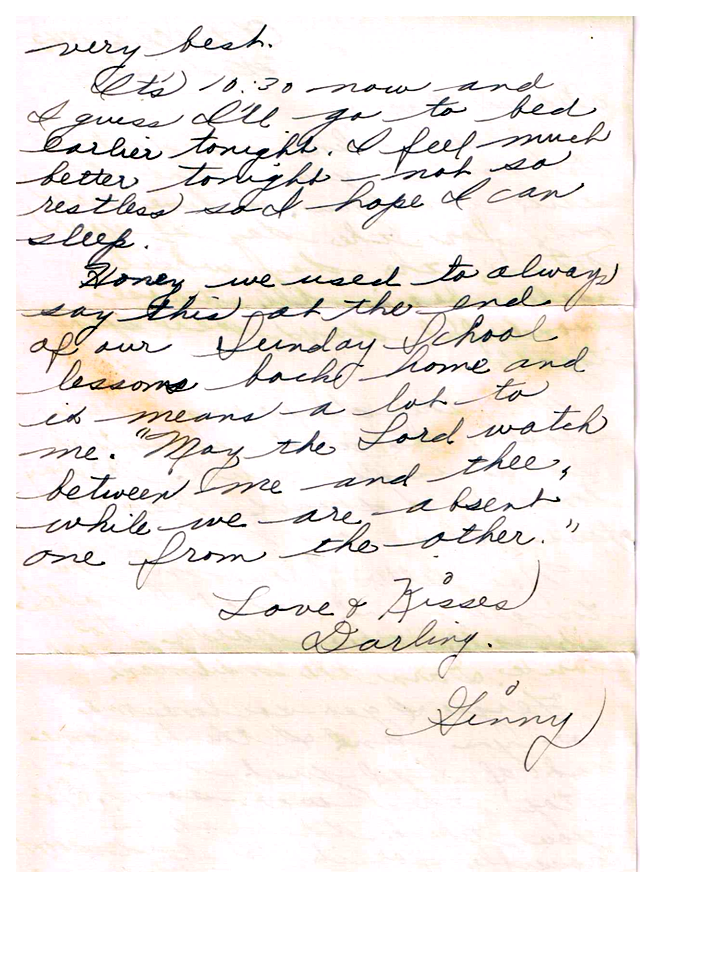 very best.
It's 10:30 now and
I guess I'll go to bed
earlier tonight. I feel much
better tonight - not so
restless so I hope I can
sleep.
Honey we used to always
say this at the end
of our Sunday School
lessons back home and
it means a lot to
me. "May the Lord watch
between me and thee,
while we are absent
one from the other."
Love & Kisses
Darling.
Ginny